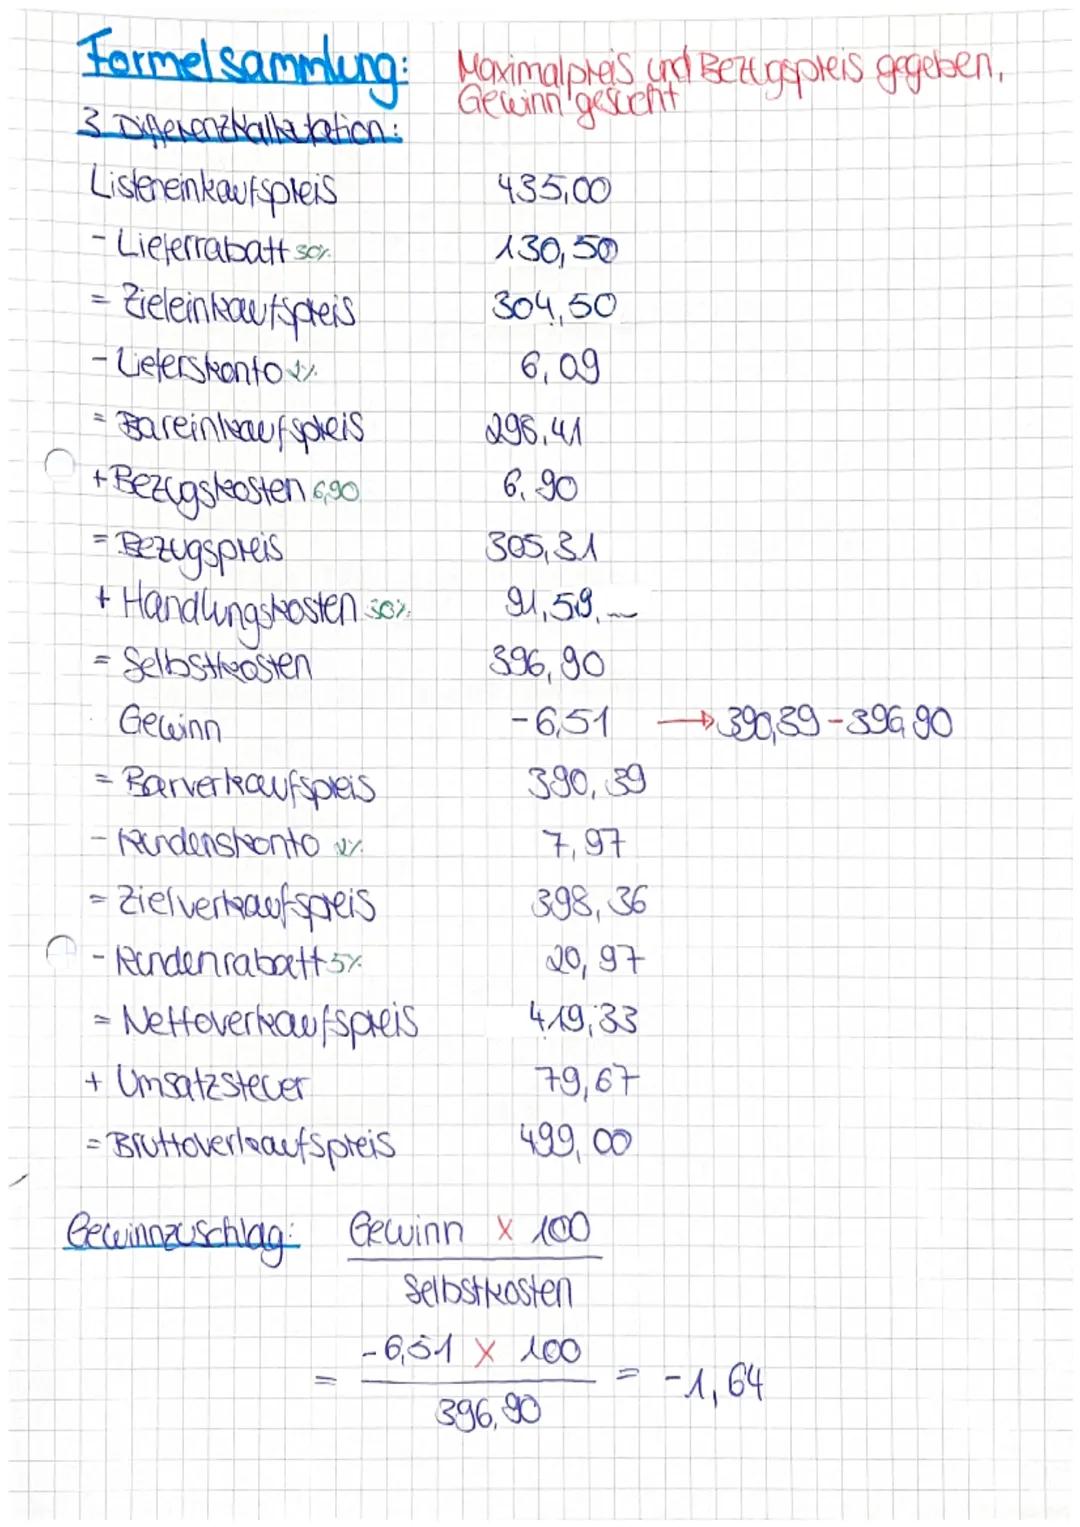 Formelsammlung: Maximalpreis und Bezugspreis gegeben,
Gewinn gesucht
3 Differenzkalkulation:
Listeneinkaufspreis 435,00
- Lieferrabatt 30% 130,50
= Zieleinkaufspreis 304,50
- Lieferskonto 2% 6,09
= Bareinkaufspreis 298,41
+ Bezugskosten 6,90 6,90
= Bezugspreis 305,31
+ Handlungskosten 30% 91,59
= Selbstkosten 396,90
Gewinn -6,51 → 390,39 - 396,90
= Barverkaufspreis 390,39
- Kundenskonto 2% 7,97
= Zielverkaufspreis 398,36
- Kundenrabatt 5% 20,97
= Nettoverkaufspreis 419,33
+ Umsatzsteuer 79,67
= Bruttoverkaufspreis 499,00
Gewinnzuschlag: Gewinn x 100
Selbstkosten
= -6,51 x 100 = -1,64
396,90